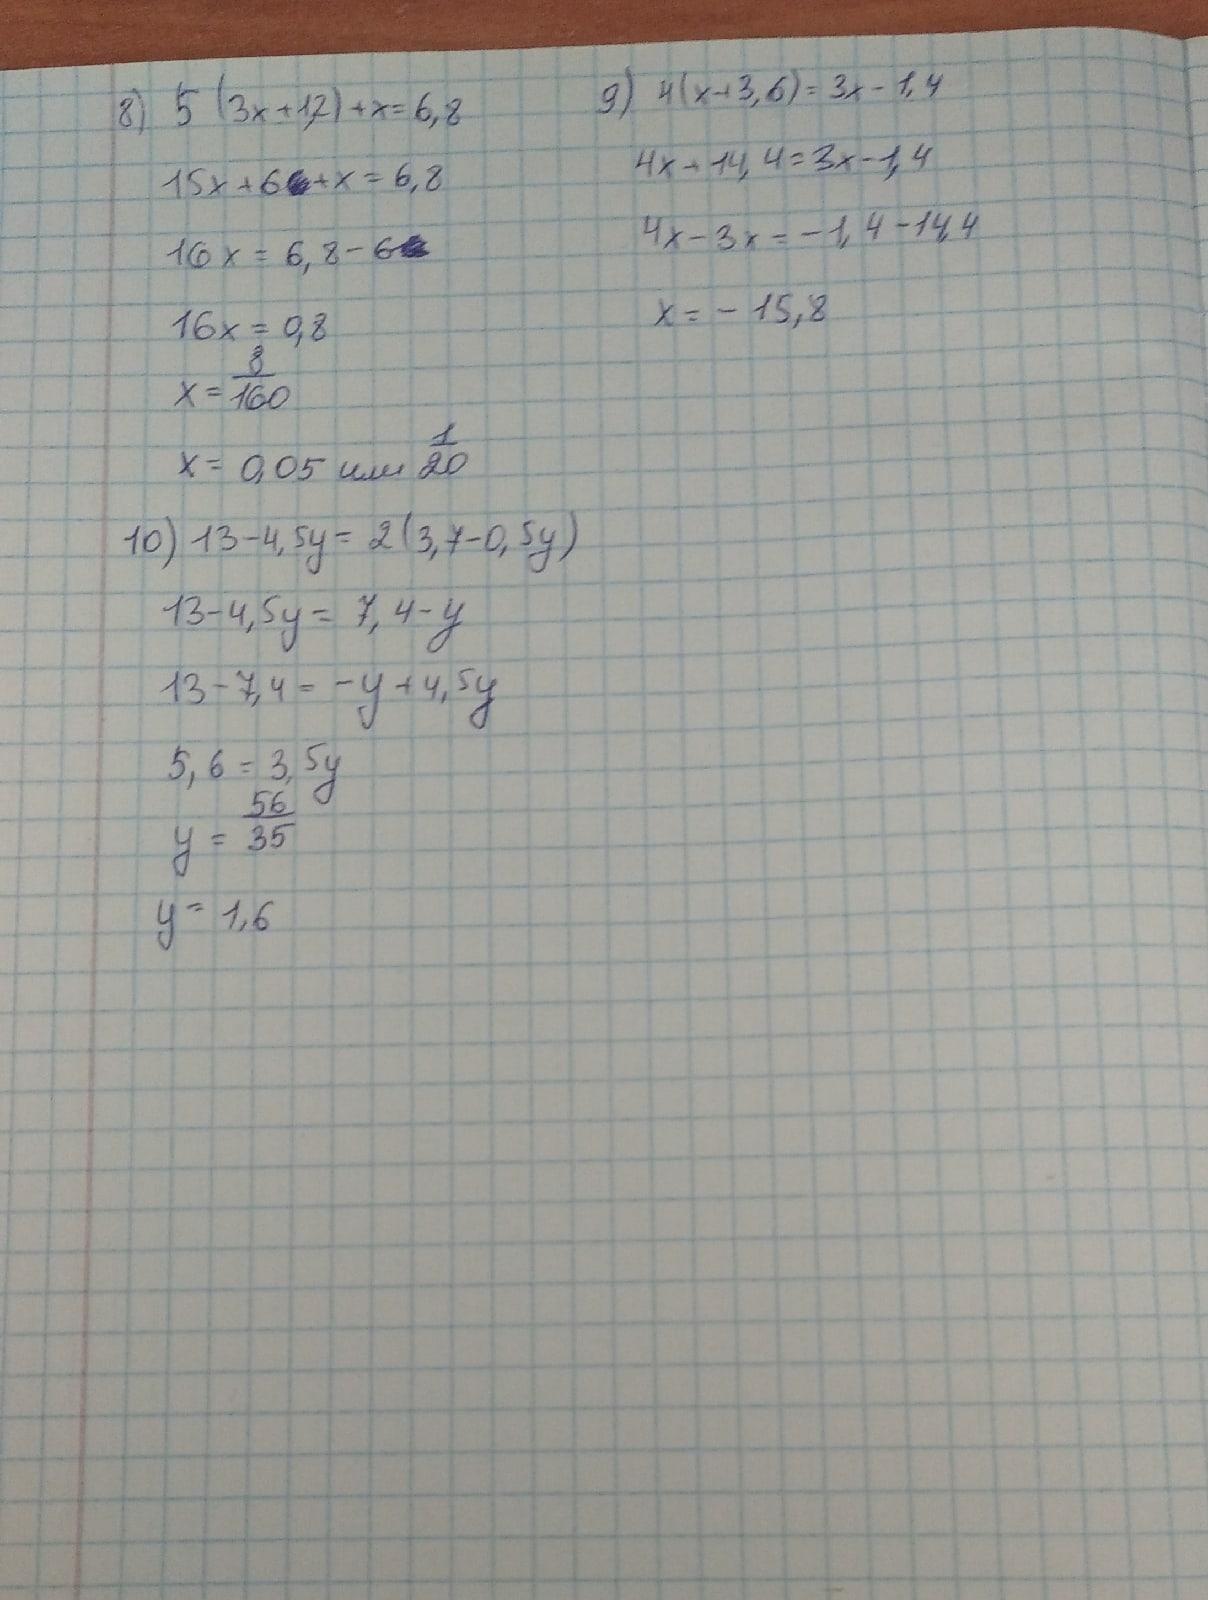 8) 5 (3x+1,2)+x=6,8
15x+6+x=6,8
16x=6,8-6
16x=0,8
x=8/160
x=0,05 или 1/20
9) 4(x+3,6)=3x-1,4
4x+14,4=3x-1,4
4x-3x=-1,4-14,4
x=-15,8
10) 13-4,5y=2(3,7-0,5y)
13-4,5y=7,4-y
13-7,4=-y+4,5y
5,6=3,5y
y=56/35
y=1,6